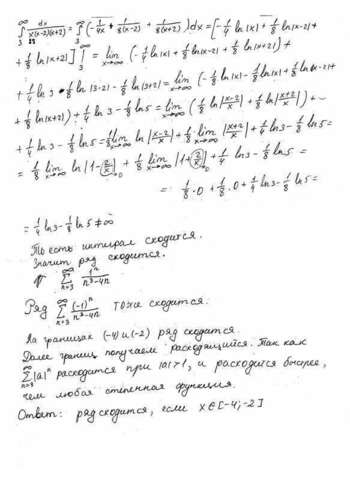 ∫₃^∞ dx/(x(x-2)(x+2)) = ∫₃^∞ (-1/(4x) + 1/(8(x-2)) + 1/(8(x+2))) dx = [-1/4 ln|x| + 1/8 ln|x-2| +
+ 1/8 ln|x+2|] |₃^∞ = lim_{x→∞} (-1/4 ln|x| + 1/8 ln|x-2| + 1/8 ln|x+2|) +
+ 1/4 ln 3 - 1/8 ln|3-2| - 1/8 ln|3+2| = lim_{x→∞} (-1/8 ln|x| - 1/8 ln|x| + 1/8 ln|x-2| +
+ 1/8 ln|x+2|) + 1/4 ln 3 - 1/8 ln 5 = lim_{x→∞} (1/8 ln|(x-2)/x| + 1/8 ln|(x+2)/x|) +
+ 1/4 ln 3 - 1/8 ln 5 = 1/8 lim_{x→∞} ln|(x-2)/x| + 1/8 lim_{x→∞} |(x+2)/x| + 1/4 ln 3 - 1/8 ln 5 =
= 1/8 lim_{x→∞} ln|1 - 2/x →0| + 1/8 lim_{x→∞} |1 + 2/x →0| + 1/4 ln 3 - 1/8 ln 5 =
= 1/8 · 0 + 1/8 · 0 + 1/4 ln 3 - 1/8 ln 5 =
= 1/4 ln 3 - 1/8 ln 5 ≠ ∞
То есть интеграл сходится.
Значит ряд сходится.
∑_{n=3}^∞ 1ⁿ/(n³-4n)
Ряд ∑_{n=3}^∞ (-1)ⁿ/(n³-4n) тоже сходится.
На границах (-4) и (-2) ряд сходится.
Далее границ получаем расходящийся. Так как
∑_{n=3}^∞ |a|ⁿ расходится при |a|>1, и расходится быстрее,
чем любая степенная функция.
Ответ: ряд сходится, если x∈[-4;-2]